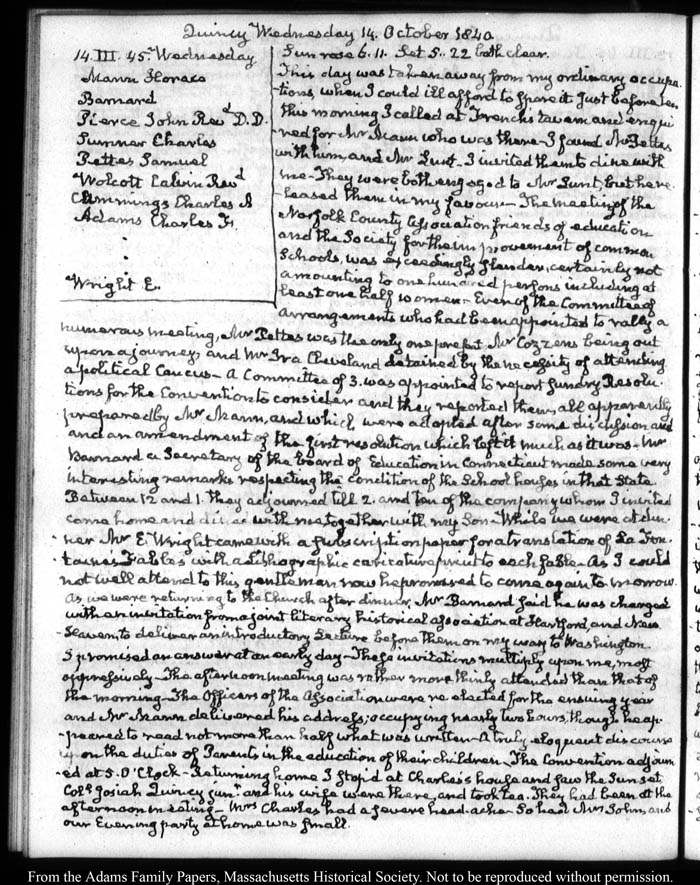 Quincy Wednesday 14. October 1840
14. III. 45. Wednesday
Mann Horace
Barnard
Pierce John Revd D.D.
Sumner Charles
Pettes Samuel
Wolcott Calvin Revd
Cummings Charles
Adams Charles F.
Wright E.
Sun rose 6.11. Set 5..22 both clear.
This day was taken away from my ordinary occupa-
tions, when I could ill afford to spare it Just before ten
this morning I called at French's tavern and enqui-
red for Mr Mann who was there. I found Mr Pettes
with him, and Mr Lunt. I invited them to dine with
me. They were both engaged to Mr Lunt, but he re-
leased them in my favour. The meeting of the
Norfolk County Association friends of education
and the Society for the improvement of common
Schools, was exceedingly slender, certainly not
amounting to one hundred persons including at
least one half women. Even of the Committee of
arrangements who had been appointed to rally a
numerous meeting, Mr Pettes was the only one present Mr Cozzens being out
upon a journey, and Mr Ira Cleveland detained by the necessity of attending
a political Caucus. A Committee of 3. was appointed to report sundry Resolu-
tions for the Convention to consider and they reported them, all apparently
prepared by Mr Mann, and which were adopted after some discussion and
and an amendment of the first resolution which left it much as it was. Mr
Barnard a Secretary of the board of Education in Connecticut made some very
interesting remarks respecting the condition of the School houses in that State
Between 12 and 1 they adjourned till 2. and ten of the company whom I invited
came home and dined with me together with my Son. While we were at din-
ner Mr E. Wright came with a subscription paper for a translation of La Fon-
taine's Fables with a Lithographic caricature print to each fable. As I could
not well attend to this gentleman now he promised to come again to-morrow.
As we were returning to the Church after dinner, Mr Barnard said he was charged
with an invitation from a joint literary historical association at Hartford, and New
Haven, to deliver an introductory Lecture before them on my way to Washington.
I promised an answer at an early day. These invitations multiply upon me, most
oppressively. The afternoon meeting was rather more thinly attended than that of
the morning. The Officers of the Association were re-elected for the ensuing year
and Mr Mann delivered his address; occupying nearly two hours, though he ap-
peared to read not more than half what was written. A truly eloquent discourse
on the duties of Parents in the education of their children. The Convention adjourn-
ed at 5. O'Clock. Returning home I stop'd at Charles's house and saw the Sun set
Coll Josiah Quincy junr and his wife were there, and took tea. They had been at the
afternoon meeting. Mrs Charles had a severe head-ache. So had Mrs John, and
our Evening party at home was small.
From the Adams Family Papers, Massachusetts Historical Society. Not to be reproduced without permission.